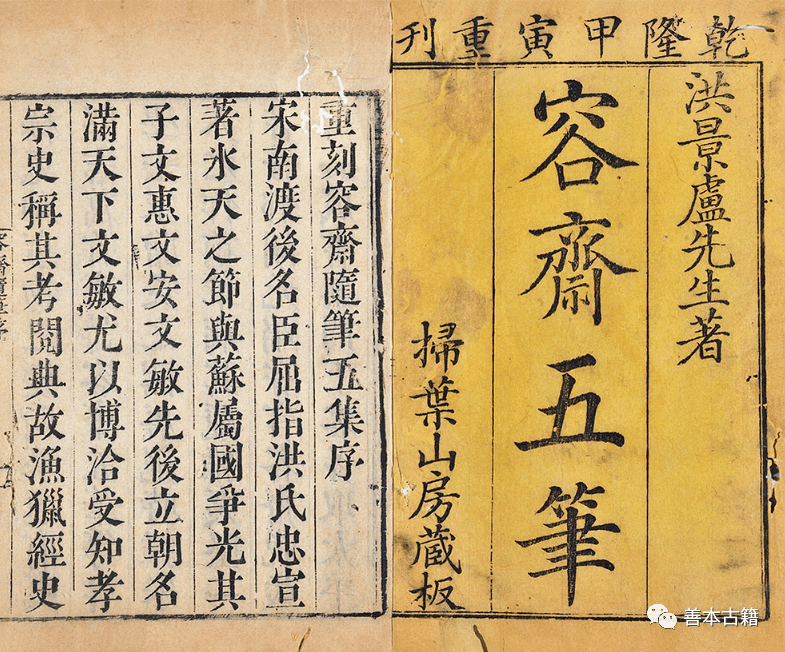 乾隆甲寅重刊
洪景盧先生著
容齋五筆
掃葉山房藏板
重刻容齋隨筆五集序
宋南渡後名臣屈指洪氏忠宣
著氷天之節與蘇屬國爭光其
子文惠文安文敏先後立朝名
滿天下文敏尤以博洽受知孝
宗史稱其考閱典故漁獵經史
善本古籍